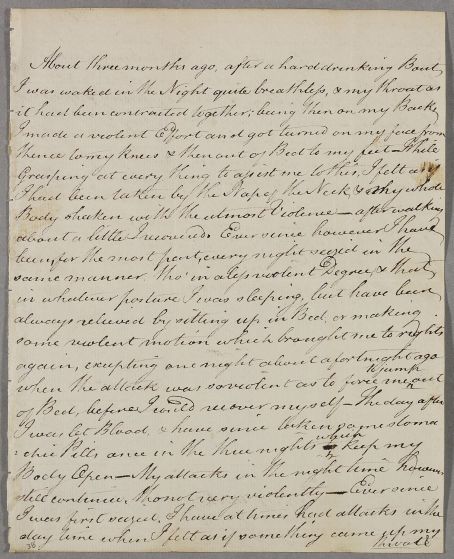 About three months ago, after a hard drinking Bout,
I was waked in the Night quite breathless, & my throat as
it had been contracted together; being then on my Back,
I made a violent Effort and got turned on my face from
thence to my Knees & then out of Bed to my feet — While
Grasping at every thing to assist me to this, I felt as if
I had been taken by the Nape of the Neck & my whole
Body shaken with the utmost Violence — after walking
about a little I recovered. Ever since however I have
been, for the most part, every night seized in the
same manner, tho' in a less violent Degree, & that
in whatever posture I was sleeping, but have been
always relieved by sitting up in Bed, or making
some violent motion which brought me to rights
again, excepting one night about a fortnight ago
when the attack was so violent as to force me to jump out
of Bed, before I could recover myself — The day after
I was let Blood, & have since taken some stoma
chic Pills once in the three nights which keep my
Body Open — My attacks in the night time however
still continue, tho not very violently — Ever since
I was first seized, I have at times had attacks in the
day time when I felt as if something came up my
throat &